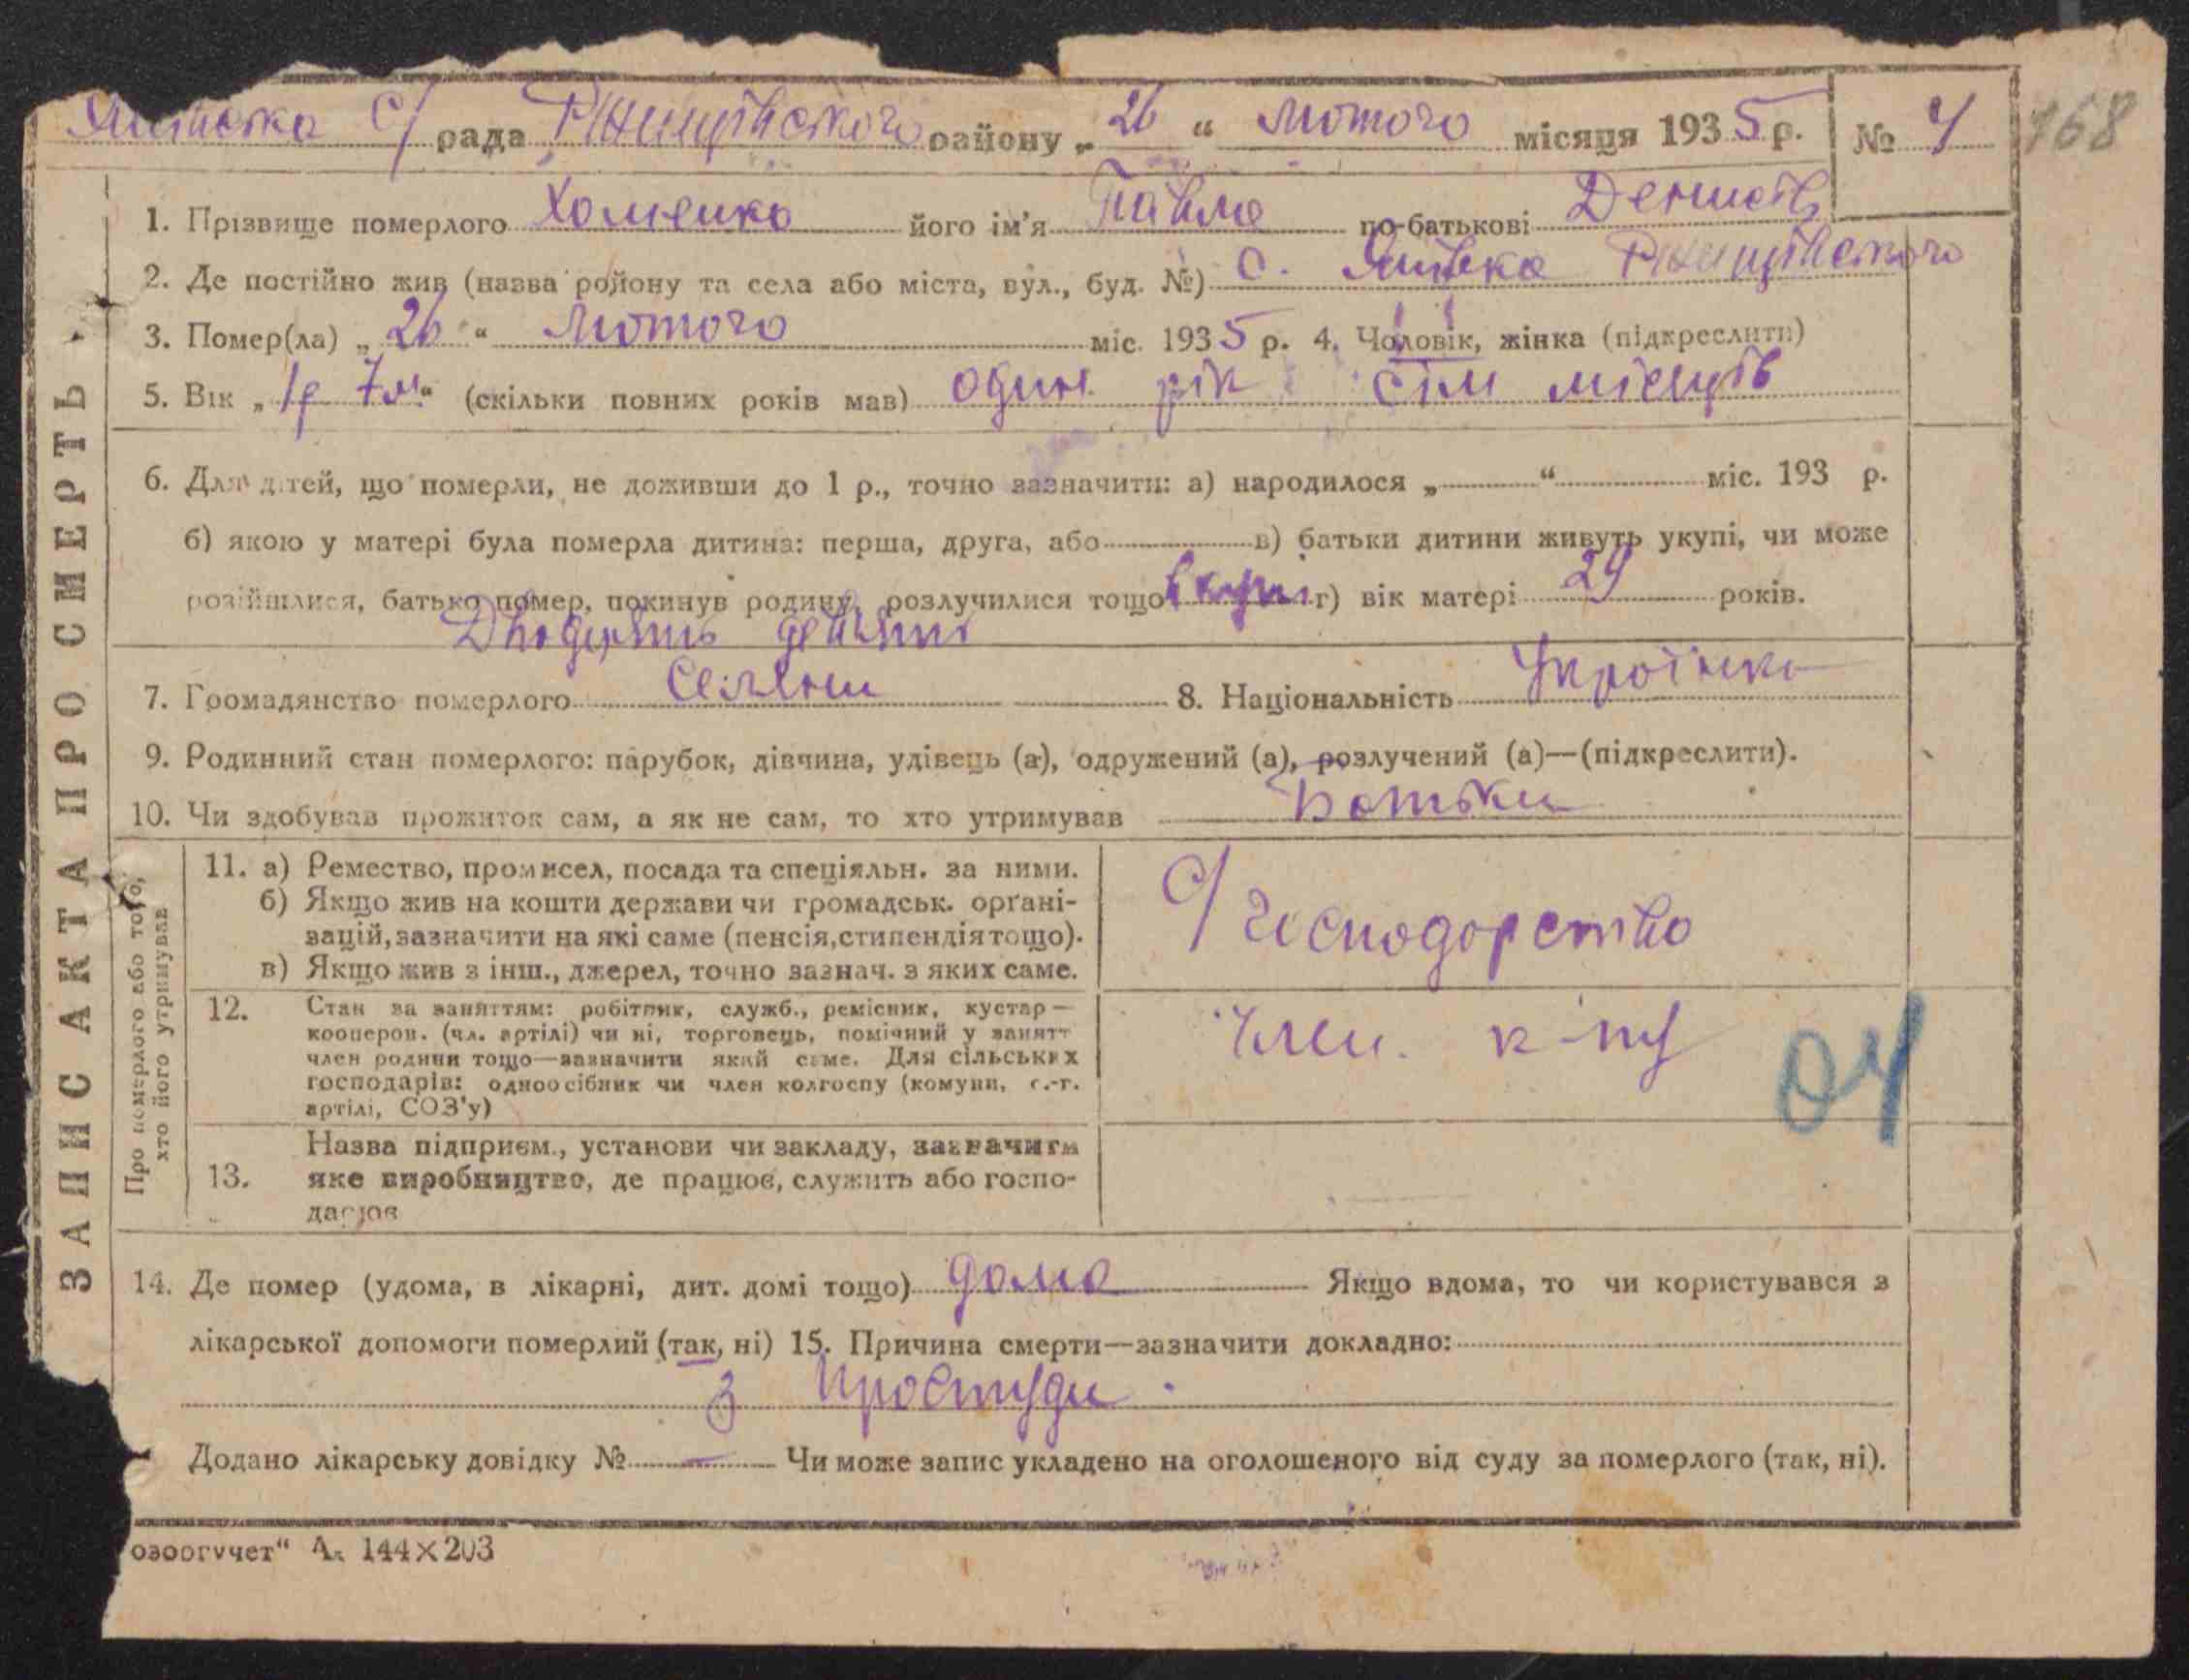 С/рада Ржищівського району „26“ Лютого місяця 1935 р. № 4 168
1. Прізвище померлого Хоменко його ім'я Павло по-батькові Денисів
2. Де постійно жив (назва району та села або міста, вул., буд. №) С. Ржищівського
3. Помер(ла) „26“ Лютого міс. 1935 р. 4. Чоловік, жінка (підкреслити)
5. Вік „1р 7м“ (скільки повних років мав) один рік сім місяців
6. Для дітей, що померли, не доживши до 1 р., точно зазначити: а) народилося „ “ міс. 193 р.
б) якою у матері була померла дитина: перша, друга, або в) батьки дитини живуть укупі, чи може
розійшлися, батько помер, покинув родину, розлучилися тощо вкупі г) вік матері 29 років.
Двадцять девять
7. Громадянство померлого Селяни 8. Національність Українка
9. Родинний стан померлого: парубок, дівчина, удівець (а), одружений (а), розлучений (а)—(підкреслити).
10. Чи здобував прожиток сам, а як не сам, то хто утримував Батьки
ЗАПИС АКТА ПРО СМЕРТЬ
Про померлого або того,
хто його утримував
11. а) Ремество, промисел, посада та спеціяльн. за ними.
б) Якщо жив на кошти держави чи громадськ. орґані-
зацій, зазначити на які саме (пенсія, стипендія тощо).
в) Якщо жив з інш., джерел, точно зазнач. з яких саме.
С/господарство
12. Стан за заняттям: робітник, служб., ремісник, кустар—
кооперов. (чл. артілі) чи ні, торговець, помічний у занятт
член родини тощо—зазначити який саме. Для сільських
господарів: одноосібник чи член колгоспу (комуни, с.-г.
артілі, СОЗ'у)
Член. к-пу
04
13. Назва підприєм., установи чи закладу, зазначити
яке виробництво, де працює, служить або госпо-
дарює
14. Де помер (удома, в лікарні, дит. домі тощо) дома Якщо вдома, то чи користувався з
лікарської допомоги померлий (так, ні) 15. Причина смерти—зазначити докладно:
з простуди.
Додано лікарську довідку № — Чи може запис укладено на оголошеного від суду за померлого (так, ні).
144×203